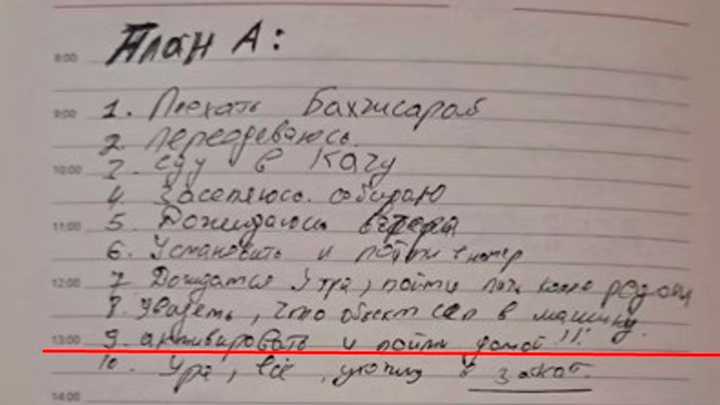 8:00
План А:
9:00
1. Поехать Бахчисарай
2. Переодеваюсь.
10:00
3. Еду в Качу
4. Заселяюсь. собираю
11:00
5. Дожидаюсь вечера
6. Установить и пойти в номер
12:00
7. Дождатся Утра, пойти
8. Увидеть, что объект сел в машину.
13:00
9. активировать и пойти домой!!!
10. Ура, всё, ухожу в закат
14:00